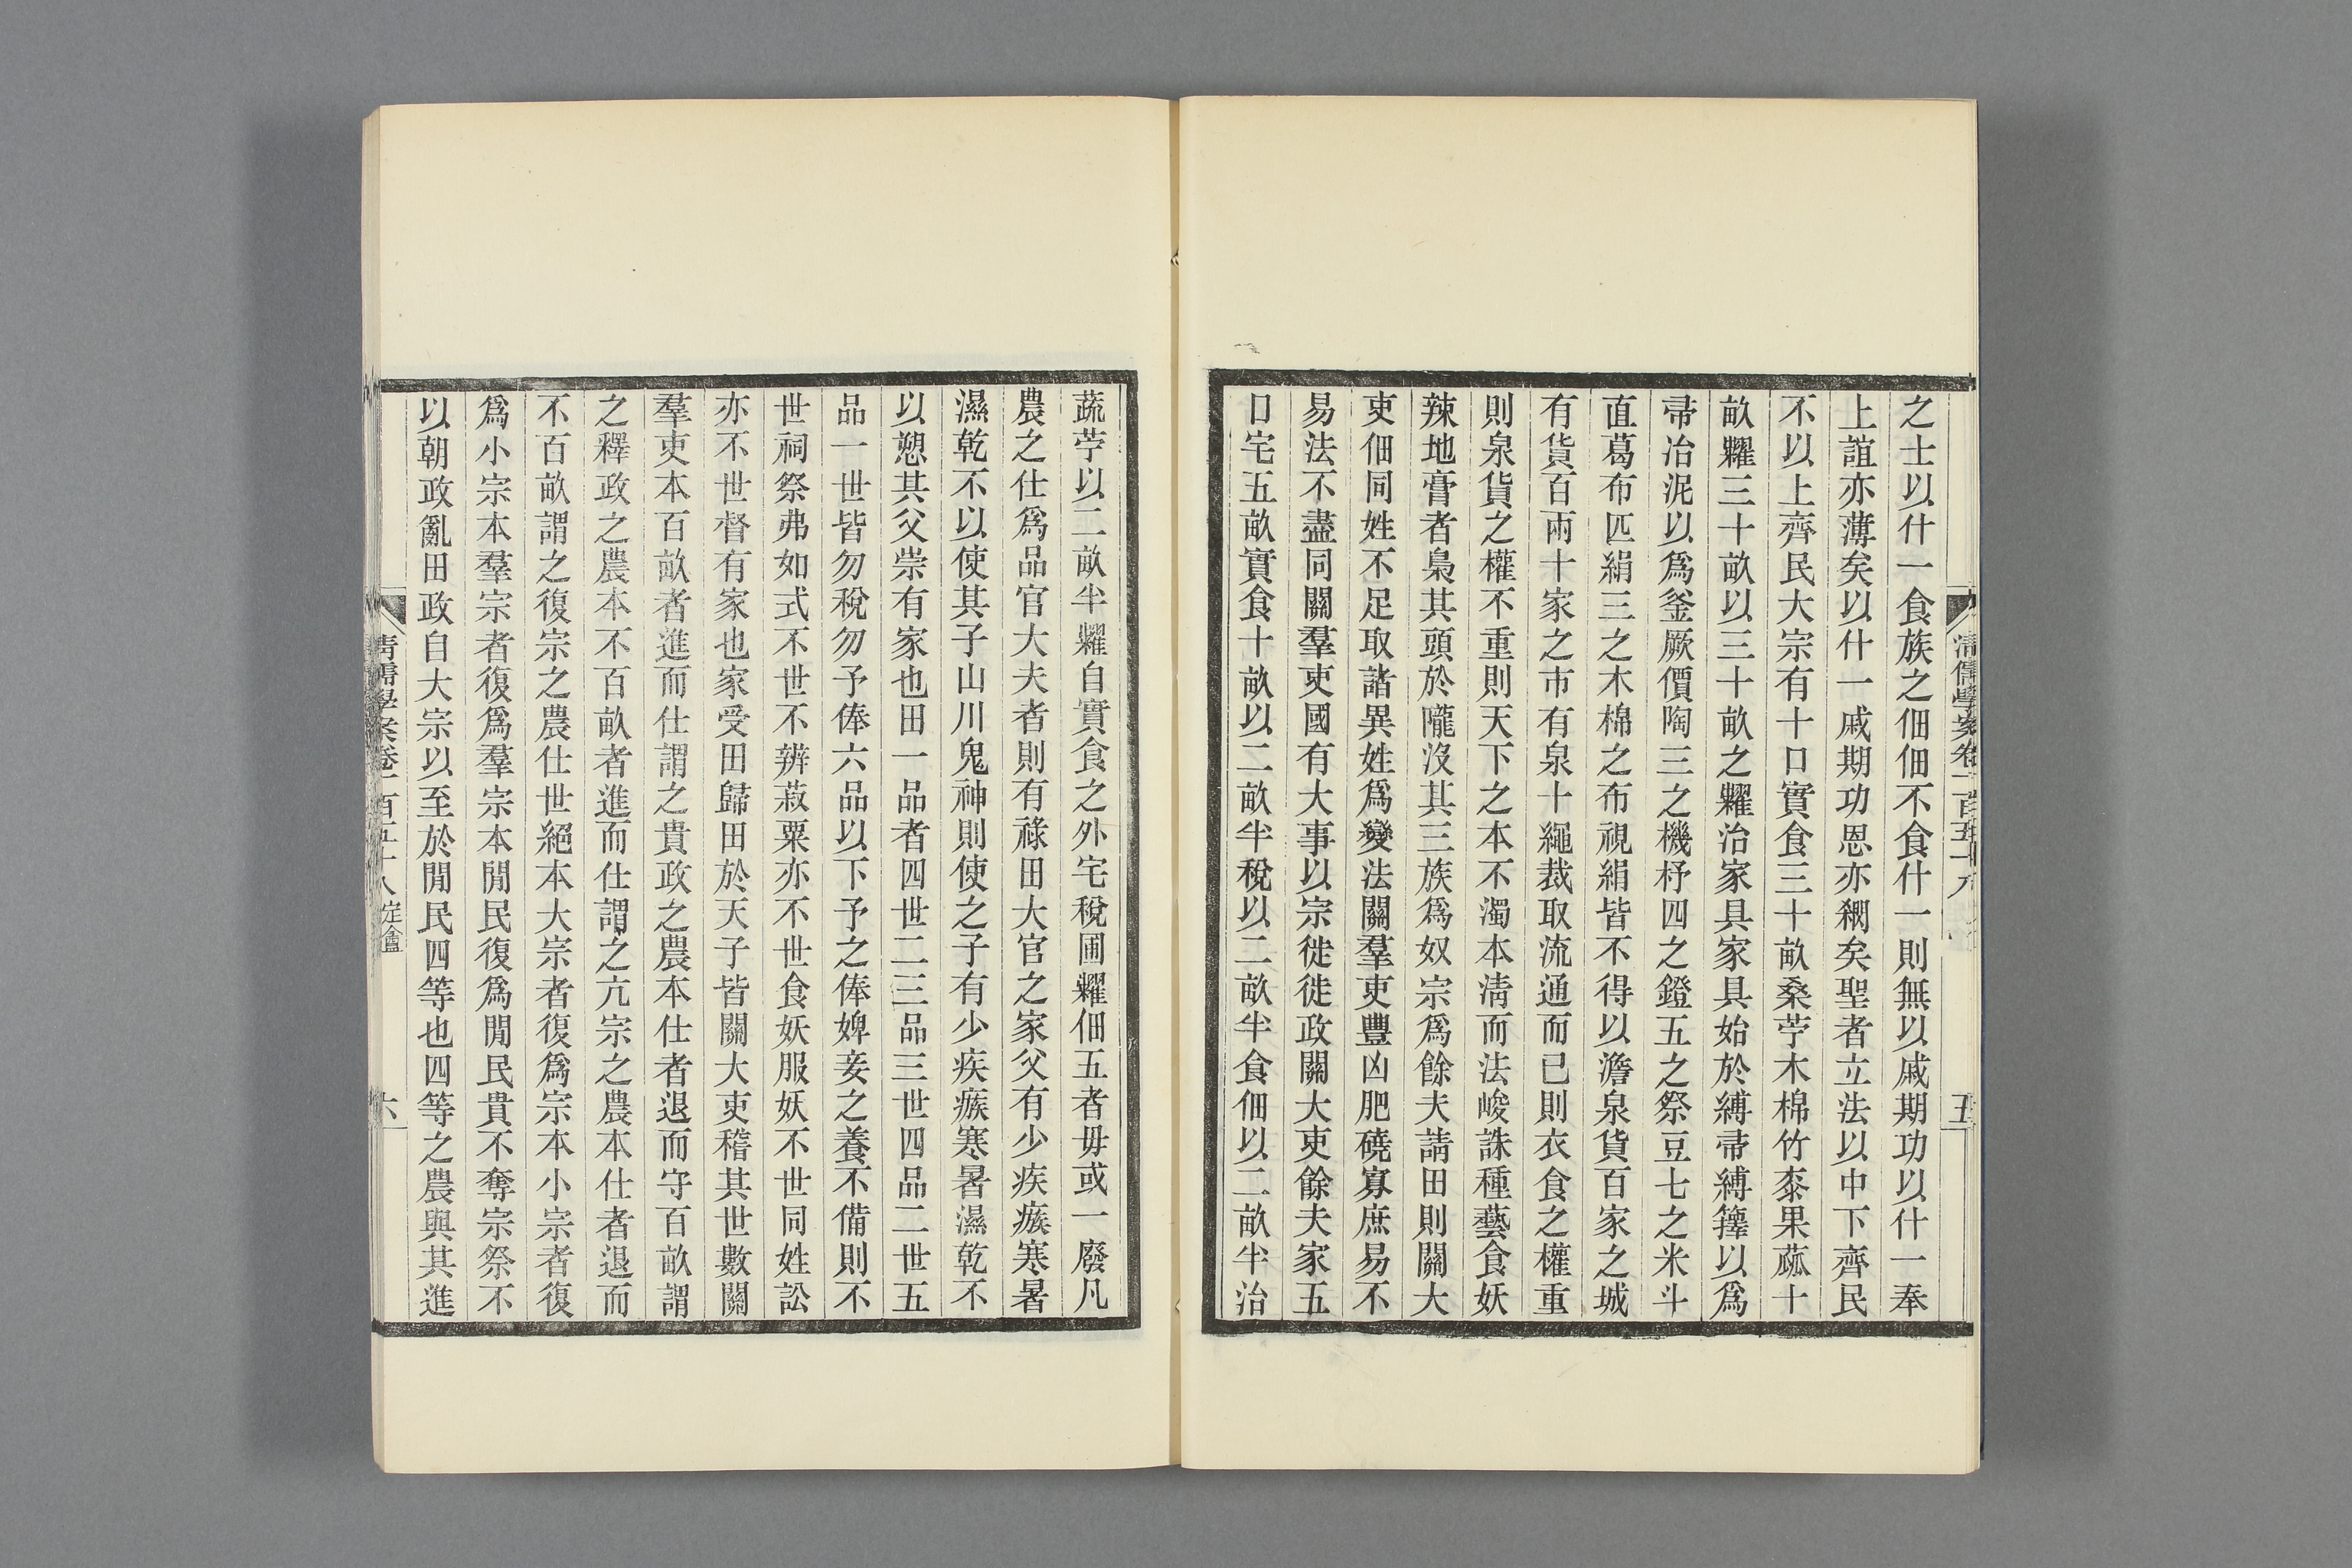 之士以什一食族之佃佃不食什一則無以戚期功以什一奉
上誼亦薄矣以什一戚期功恩亦稠矣聖者立法以中下齊民
不以上齊民大宗有十口實食三十畝桑苧木棉竹桼果蓏十
畝糶三十畝以三十畝之糶治家具家具始於縛帚縛篲以爲
帚冶泥以爲釜厥價陶三之機杼四之鐙五之祭豆七之米斗
直葛布匹絹三之木棉之布視絹皆不得以澹泉貨百家之城
有貨百兩十家之市有泉十繩裁取流通而已則衣食之權重
則泉貨之權不重則天下之本不濁本淸而法峻誅種藝食妖
辣地膏者梟其頭於隴沒其三族爲奴宗爲餘夫請田則關大
吏佃同姓不足取諸異姓爲變法關羣吏豐凶肥磽寡庶易不
易法不盡同關羣吏國有大事以宗徙徙政關大吏餘夫家五
口宅五畝實食十畝以二畝半稅以二畝半食佃以二畝半治
清儒學案卷一百五十八
五
蔬苧以二畝半糶自實食之外宅稅圃糶佃五者毋或一廢凡
農之仕爲品官大夫者則有祿田大官之家父有少疾瘯寒暑
濕乾不以使其子山川鬼神則使之子有少疾瘯寒暑濕乾不
以愬其父祟有家也田一品者四世二三品三世四品二世五
品一世皆勿稅勿予俸六品以下予之俸婢妾之養不備則不
世祠祭弗如式不世不辨菽粟亦不世食妖服妖不世同姓訟
亦不世督有家也家受田歸田於天子皆關大吏稽其世數關
羣吏本百畝者進而仕謂之貴政之農本仕者退而守百畝謂
之釋政之農本不百畝者進而仕謂之亢宗之農本仕者退而
不百畝謂之復宗之農仕世絕本大宗者復爲宗本小宗者復
爲小宗本羣宗者復爲羣宗本閒民復爲閒民貴不奪宗祭不
以朝政亂田政自大宗以至於閒民四等也四等之農與其進
清儒學案卷一百五十八 定盦
六